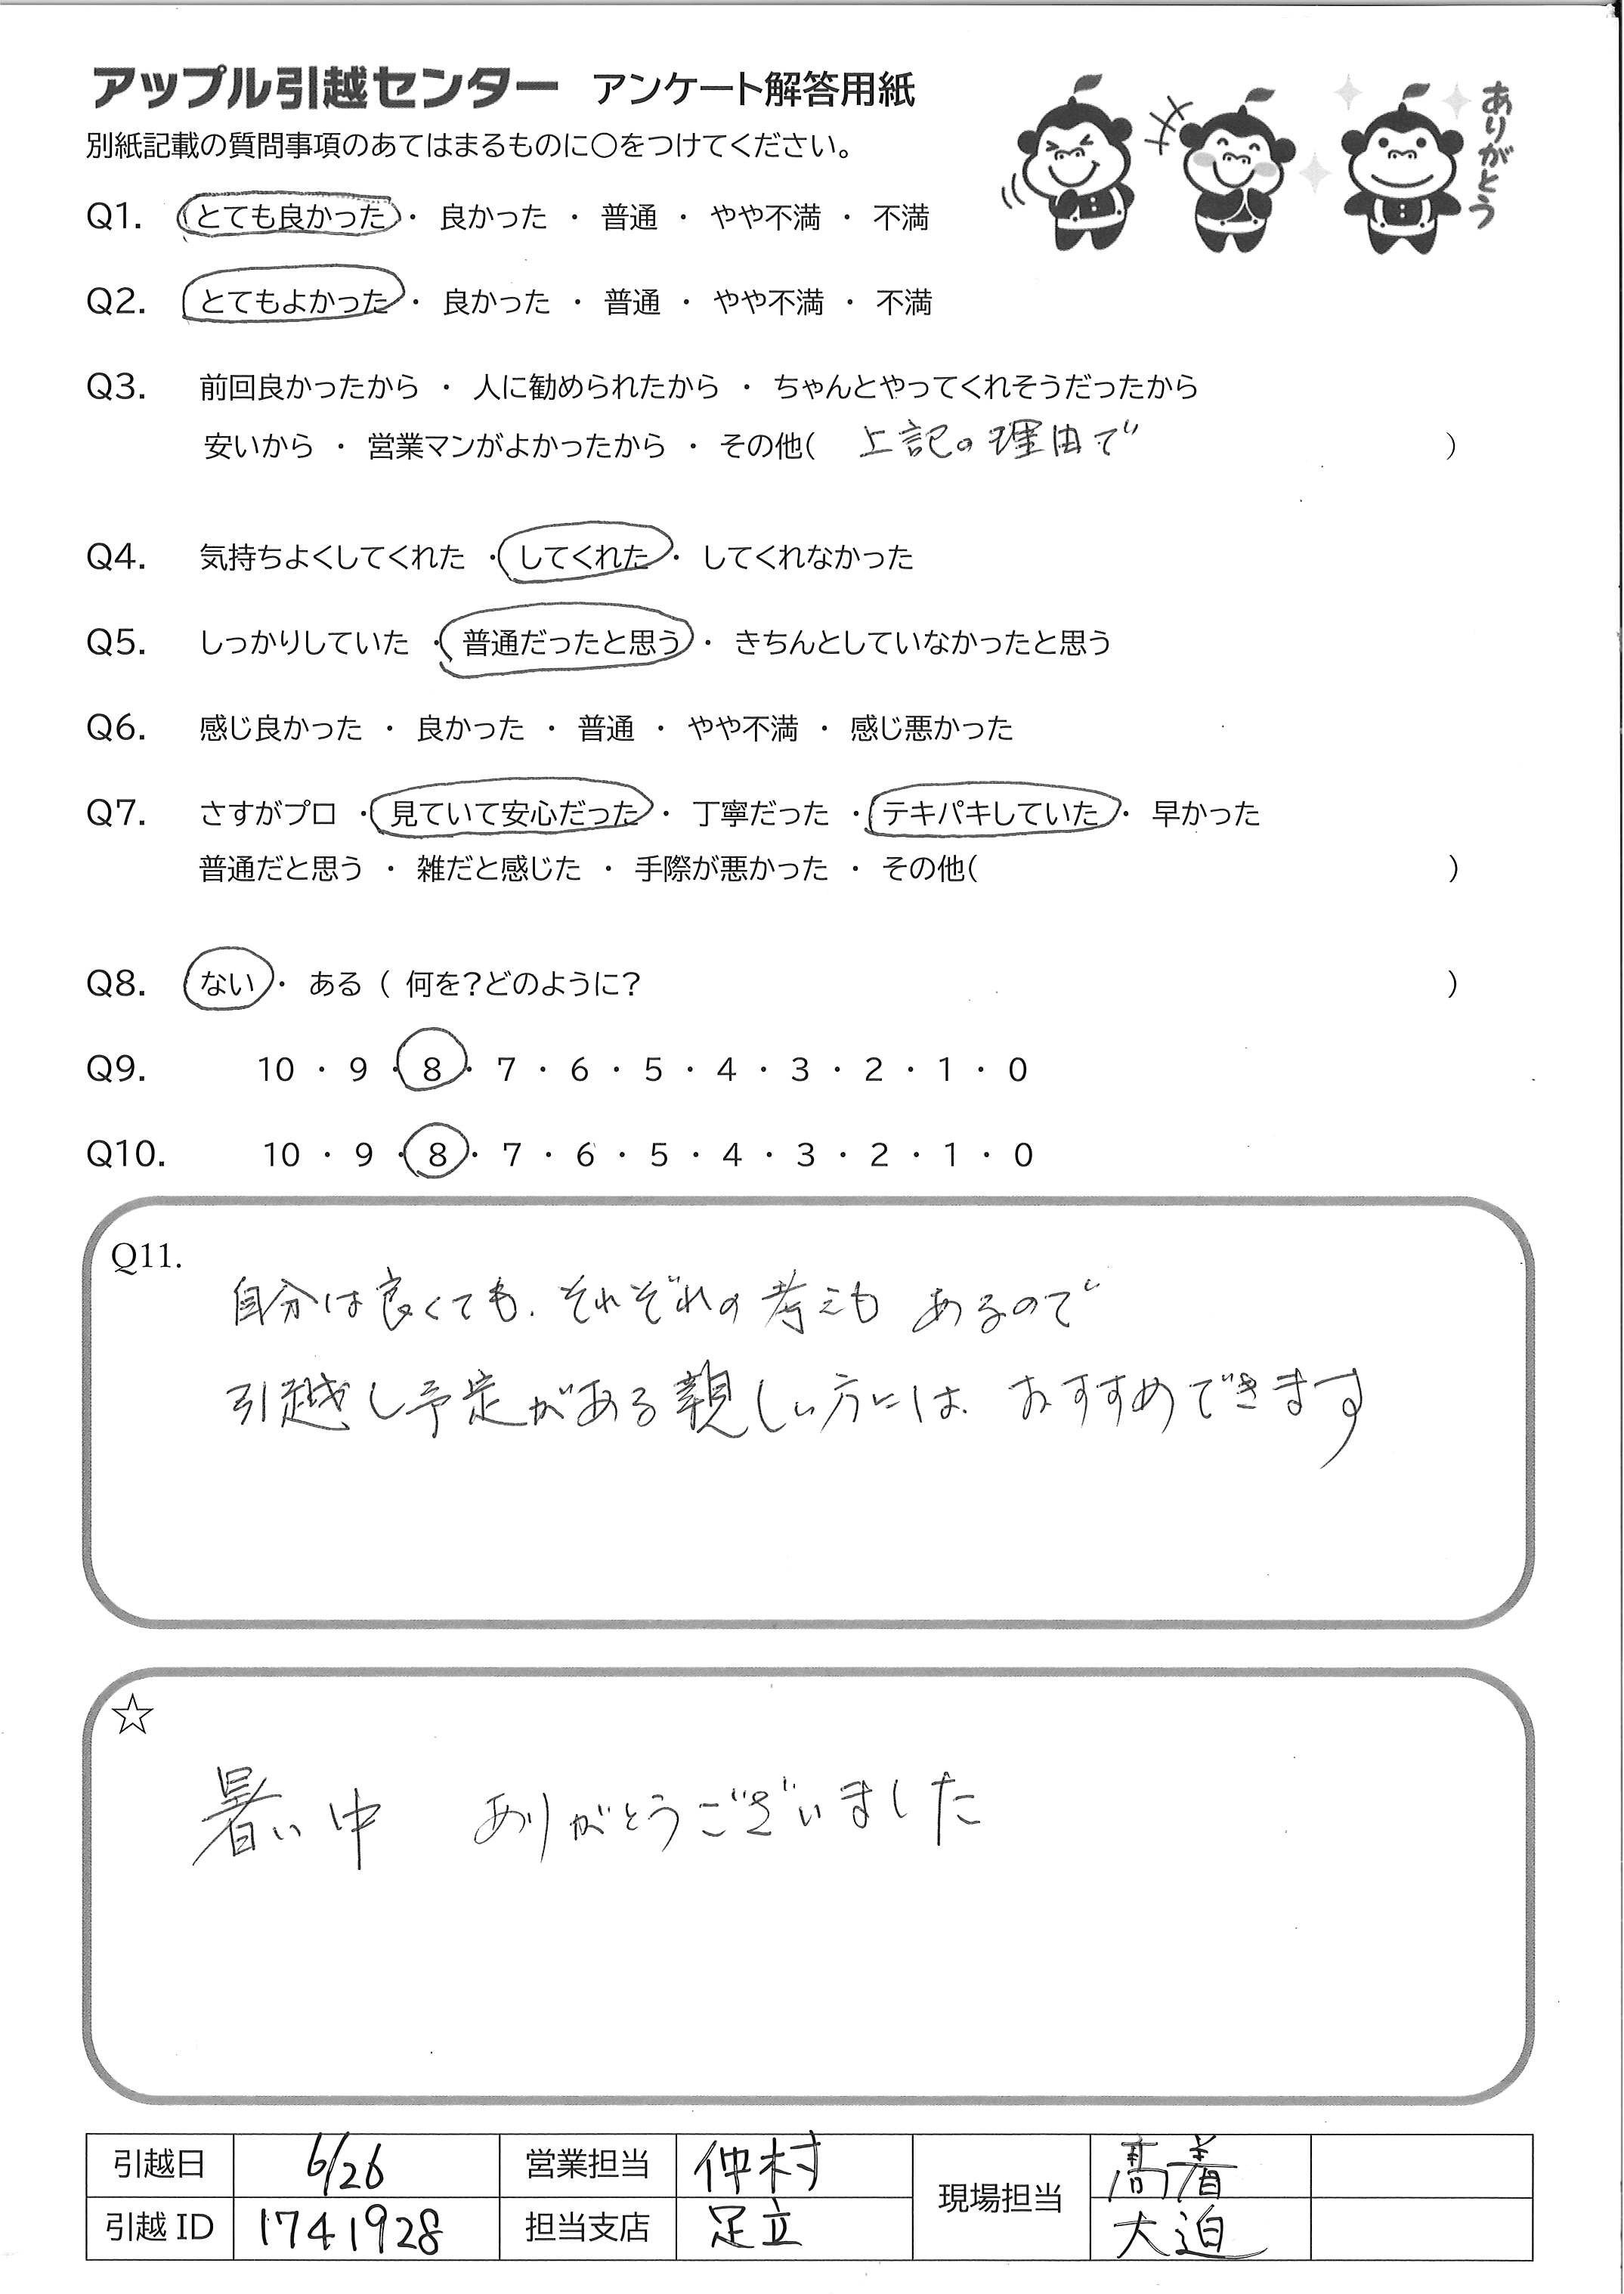 アップル引越センター アンケート解答用紙
ありがとう
別紙記載の質問事項のあてはまるものに○をつけてください。
Q1. とても良かった ・ 良かった ・ 普通 ・ やや不満 ・ 不満
Q2. とてもよかった ・ 良かった ・ 普通 ・ やや不満 ・ 不満
Q3. 前回良かったから ・ 人に勧められたから ・ ちゃんとやってくれそうだったから
安いから ・ 営業マンがよかったから ・ その他( 上記の理由で )
Q4. 気持ちよくしてくれた ・ してくれた ・ してくれなかった
Q5. しっかりしていた ・ 普通だったと思う ・ きちんとしていなかったと思う
Q6. 感じ良かった ・ 良かった ・ 普通 ・ やや不満 ・ 感じ悪かった
Q7. さすがプロ ・ 見ていて安心だった ・ 丁寧だった ・ テキパキしていた ・ 早かった
普通だと思う ・ 雑だと感じた ・ 手際が悪かった ・ その他( )
Q8. ない ・ ある ( 何を?どのように? )
Q9. 10 ・ 9 ・ 8 ・ 7 ・ 6 ・ 5 ・ 4 ・ 3 ・ 2 ・ 1 ・ 0
Q10. 10 ・ 9 ・ 8 ・ 7 ・ 6 ・ 5 ・ 4 ・ 3 ・ 2 ・ 1 ・ 0
Q11.
自分は良くても、それぞれの考えも あるので
引越し予定がある親しい方には、おすすめできます
☆
暑い中 ありがとうございました
引越日 6/26 営業担当 仲村 現場担当 髙着
引越ID 1741928 担当支店 足立 大迫